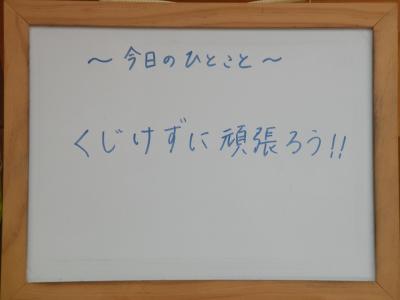 ～今日のひとこと～
くじけずに頑張ろう!!